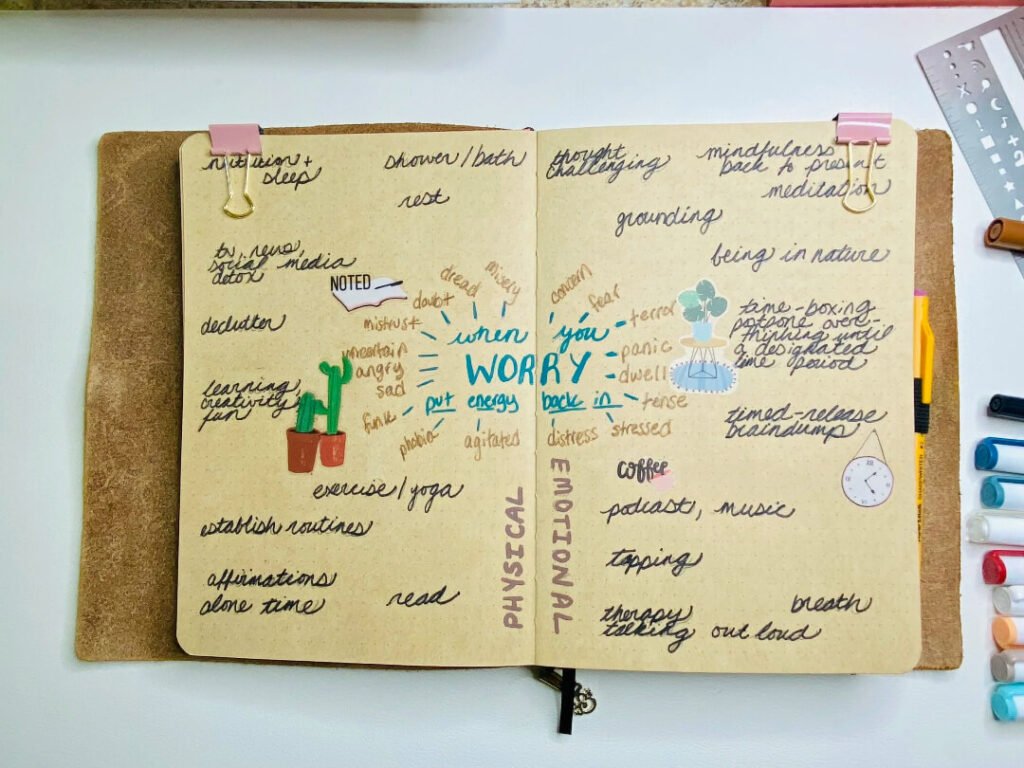 nutrition +
sleep
shower/bath
rest
tv, news,
social media
detox
NOTED
declutter
learning,
creativity,
fun
exercise/yoga
establish routines
affirmations
alone time
read
PHYSICAL
misery
dread
doubt
mistrust
uncertain
angry
sad
funk
phobia
agitated
when you
WORRY
put energy back in
concern
fear
terror
panic
dwell
tense
stressed
distress
EMOTIONAL
thought
challenging
mindfulness
back to present
meditation
grounding
being in nature
time-boxing
postpone over-
thinking until
a designated
time period
timed-release
braindump
coffee
podcast, music
tapping
therapy
talking out loud
breath